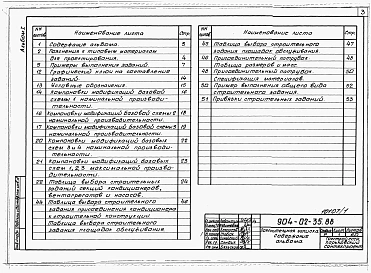 3
Альбом I
№№ листов
Наименование листа
Стр.
1 Содержание альбома. 3
2 Пояснения к типовым материалам
для проектирования. 4
5 Примеры выполнения заданий. 7
12 Графический ключ на составление
заданий. 14
13 Условные обозначения. 15
14 Компоновки модификаций базовой
схемы 1 номинальной производи-
тельности. 16
16 Компоновки модификаций базовой схемы 2
номинальной производительности. 18
17 Компоновки модификаций базовой схемы 3
номинальной производительности. 19
20 Компоновки модификаций базовых
схем 3 и 4 номинальной произво-
дительности. 22
21 Компоновки модификаций базовых
схем 1, 2, 3 максимальной произво-
дительности. 23
22 Таблица выбора строительных
заданий секций кондиционеров,
вентагрегатов и насосов. 24
44 Таблица выбора строительного
задания присоединения кондиционера
к строительной конструкции. 46
Таблица выбора строительного
задания площадок обслуживания.
№№ листов
Наименование листа
Стр.
45 Таблица выбора строительного
задания площадок обслуживания. 47
46 Присоединительный патрубок. 48
Таблица размеров и масс.
48 Присоединительный патрубок. 50
Спецификация материалов.
50 Пример выполнения общего вида
строительного задания. 52
51 Привязки строительных заданий. 53
904-02-35.88
Пояснительная записка
Содержание
альбома